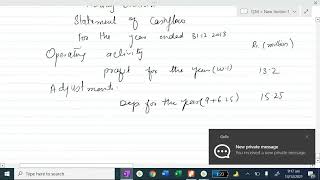 Statement of Cashflows
for the year ended 31-12 2013
Operating activity
Rs. (million)
profit for the year (w-1) 13.2
Adjustment:
Dep for the year (9+6.25) 15.25
GoTo
New private message
You received a new private message.
Type here to search
9:17 am